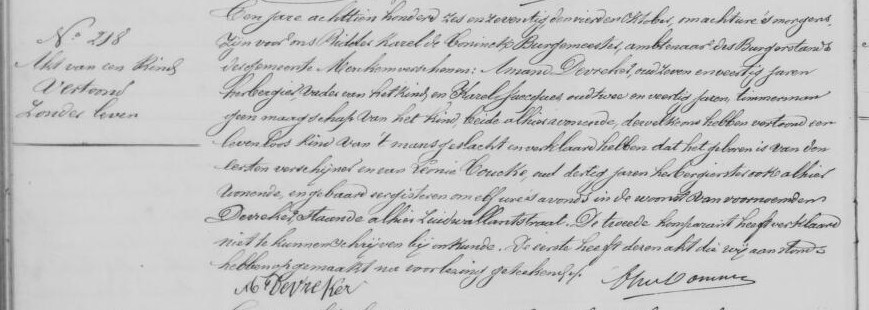 N° 218
Akt van een Kind
Vertoond
Zonder leven
Een jare achttien honderd zes en zeventig den vierden Oktober, om acht ure 's morgens,
zijn voor ons Ridder Karel de Coninck Burgemeester, ambtenaar des Burgerstands
der gemeente Meenhem verschenen: Amand Devreker, oud zeven en veertig jaren
herbergier, vader van het kind, en Karel Jacques, oud twee en veertig jaren, timmerman
geen maagschap van het kind, beide alhier wonende, dewelke ons hebben vertoond een
levenloos kind van 't mansgeslacht en verklaard hebben dat het geboren is van den
eersten verschijner en van Leonie Coucke, oud dertig jaren herbergierster ook alhier
wonende, en gebaard eergisteren om elf ure 's avonds in de woonst van voornoemden
Devreker, staande alhier Zuidwallantstraat. De tweede komparant heeft verklaard
niet te kunnen schrijven bij onkunde. De eerste heeft dezen akt die wij aanstonds
hebben opgemaakt na voorlezing geteekend
Devreker